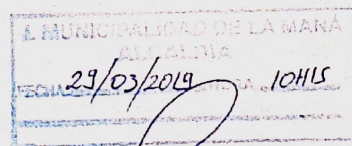 I. MUNICIPALIDAD DE LA MANÁ
ALCALDIA
FECHA 29/03/2019 HORA 10H15